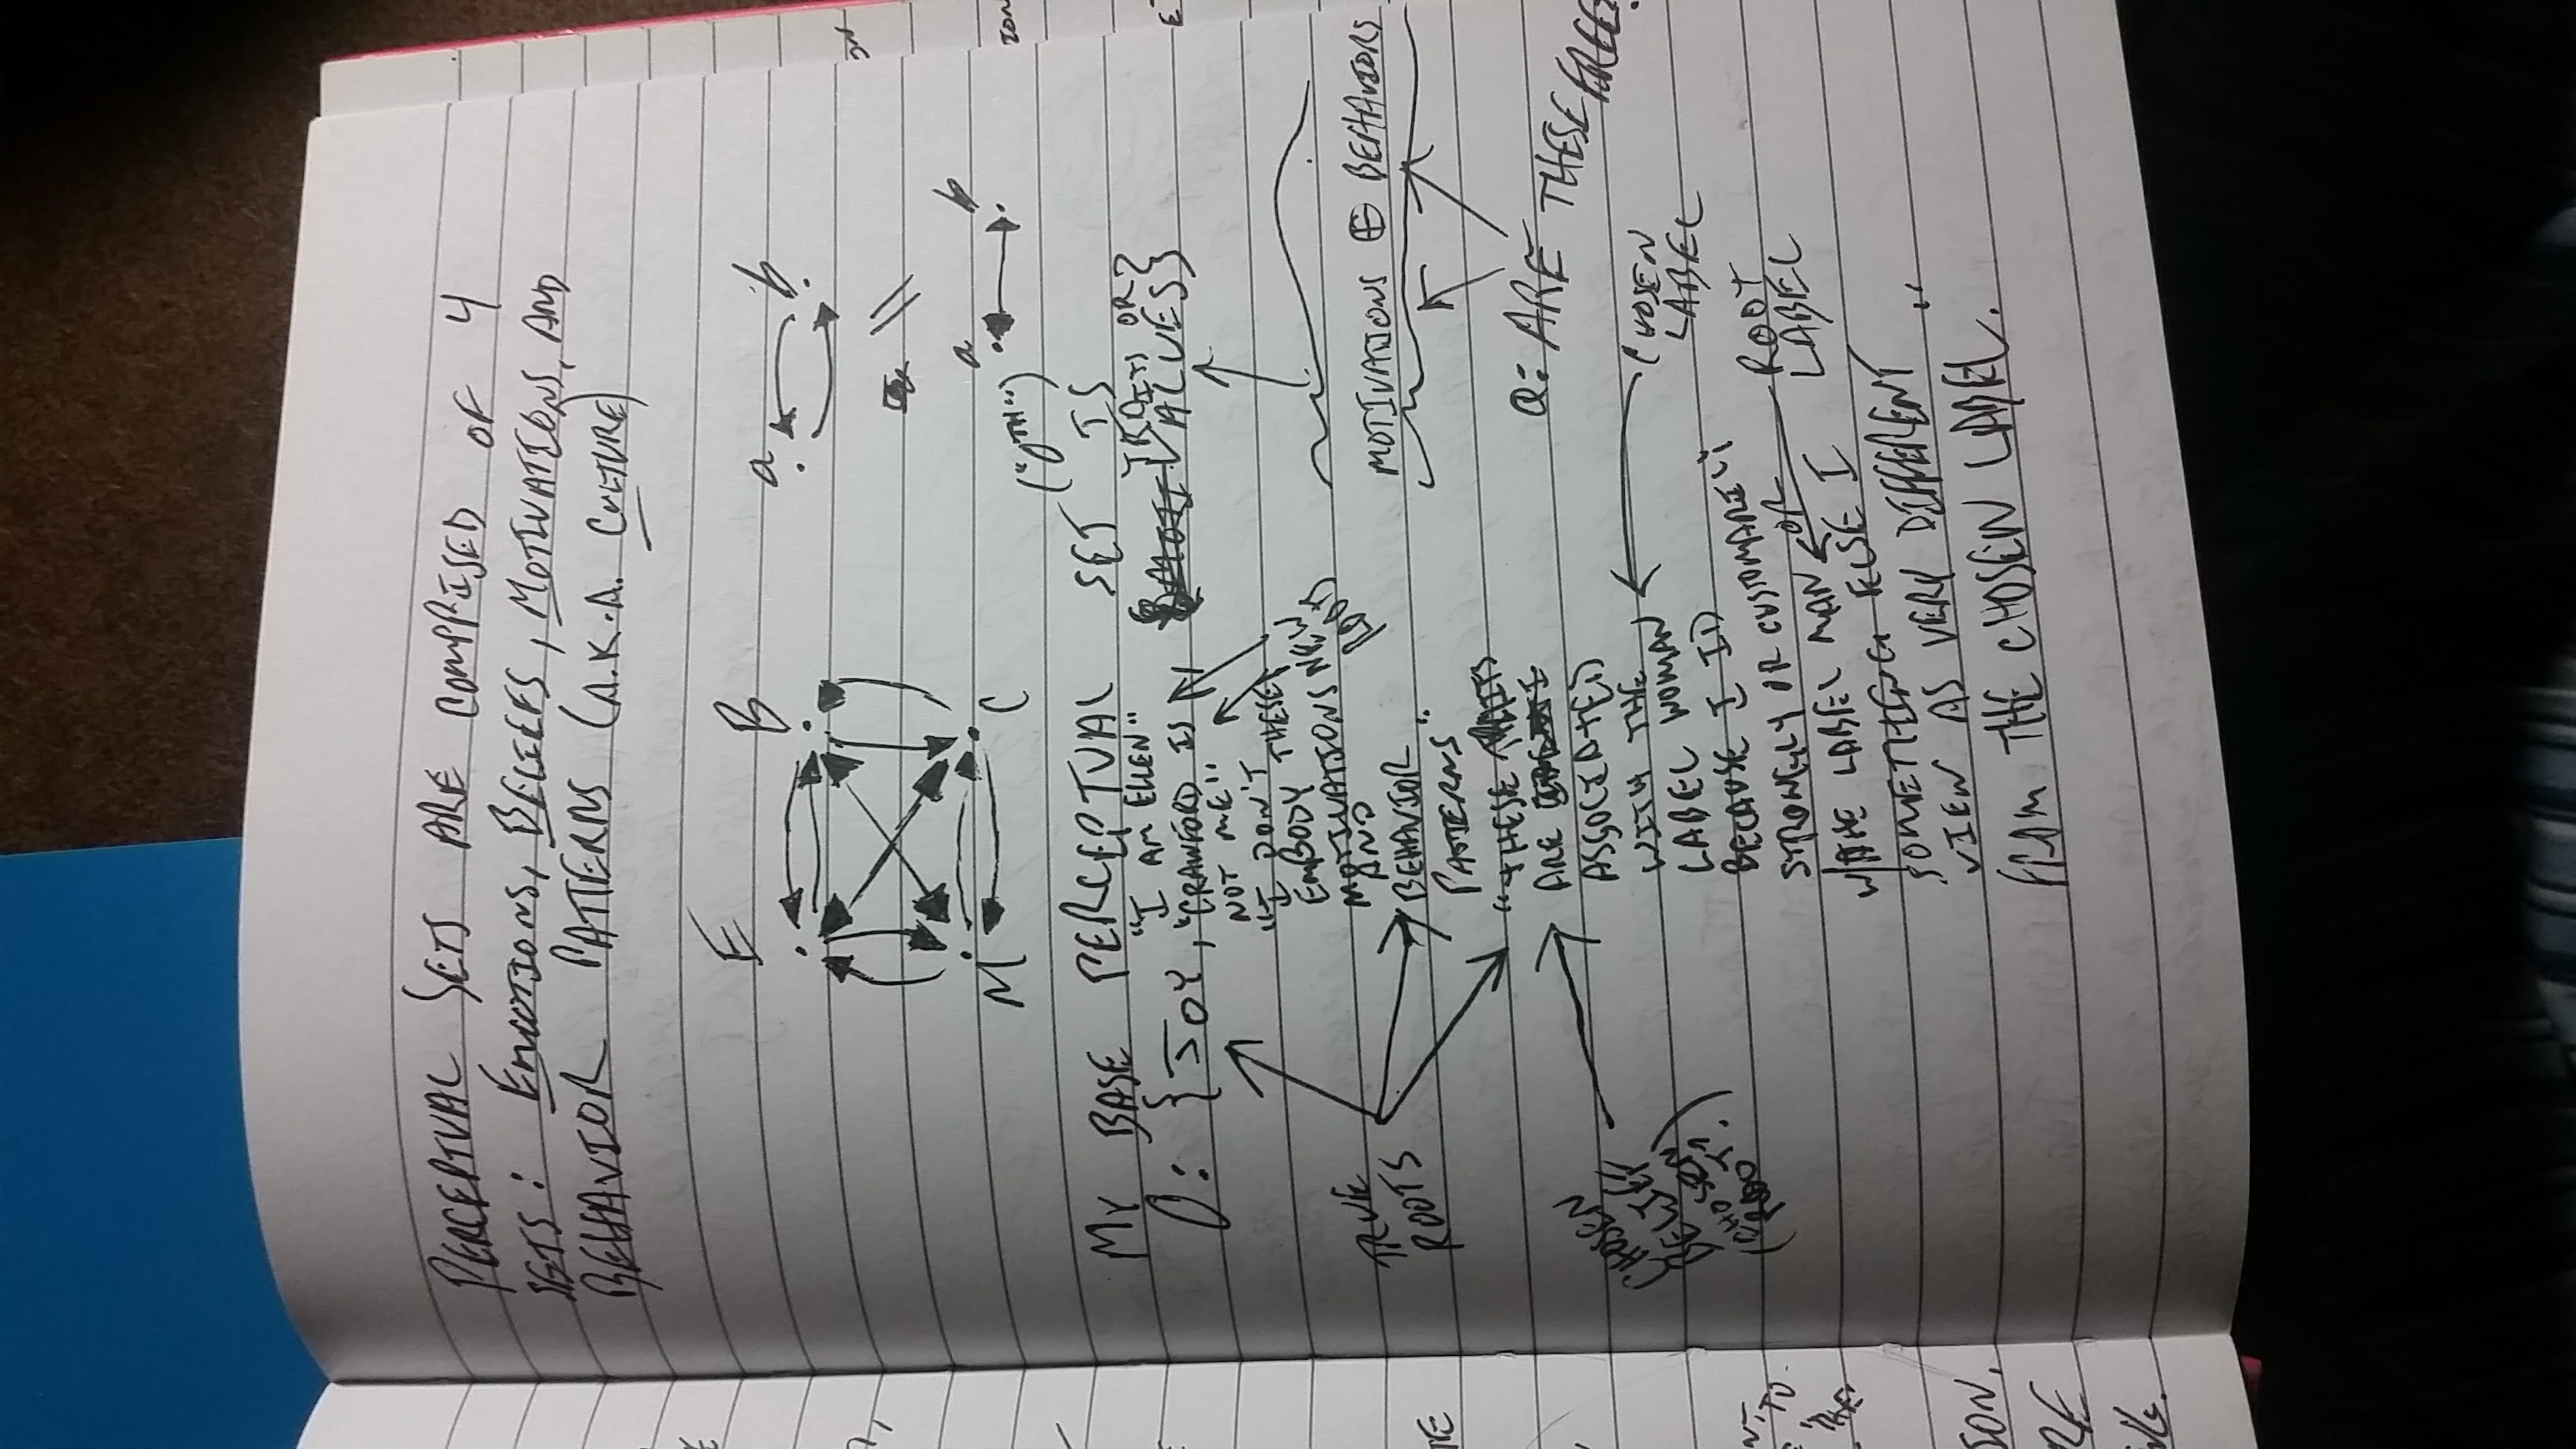 PERCEPTUAL SETS ARE COMPRISED OF 4
SETS: EMOTIONS, BELIEFS, MOTIVATIONS, AND
BEHAVIOR PATTERNS (A.K.A. CULTURE)
E B
M C
a b
a b
("0TH")
MY BASE PERCEPTUAL SET IS
0: {JOY, "I AM ELLEN"
"CRAWFORD IS
NOT ME"
"I DON'T
EMBODY THESE
MOTIVATIONS
AND
BEHAVIOR
PATTERNS"
"THESE TRAITS
ARE
ASSOCIATED
WITH THE
LABEL WOMAN
BECAUSE I ID
STRONGLY OR CUSTOMARILY
W/THE LABEL MAN OR
SOMETHING ELSE I
VIEW AS VERY DIFFERENT
FROM THE CHOSEN LABEL."
TRAITS OR
VALUES}
NEW
ROOTS
TRUE
ROOTS
MOTIVATIONS ⊕ BEHAVIORS
Q: ARE THESE FREE?
CHOSEN
BELIEF
(CHOSEN
ROOT?)
CHOSEN
LABEL
ROOT
LABEL
ION
SON,
RE